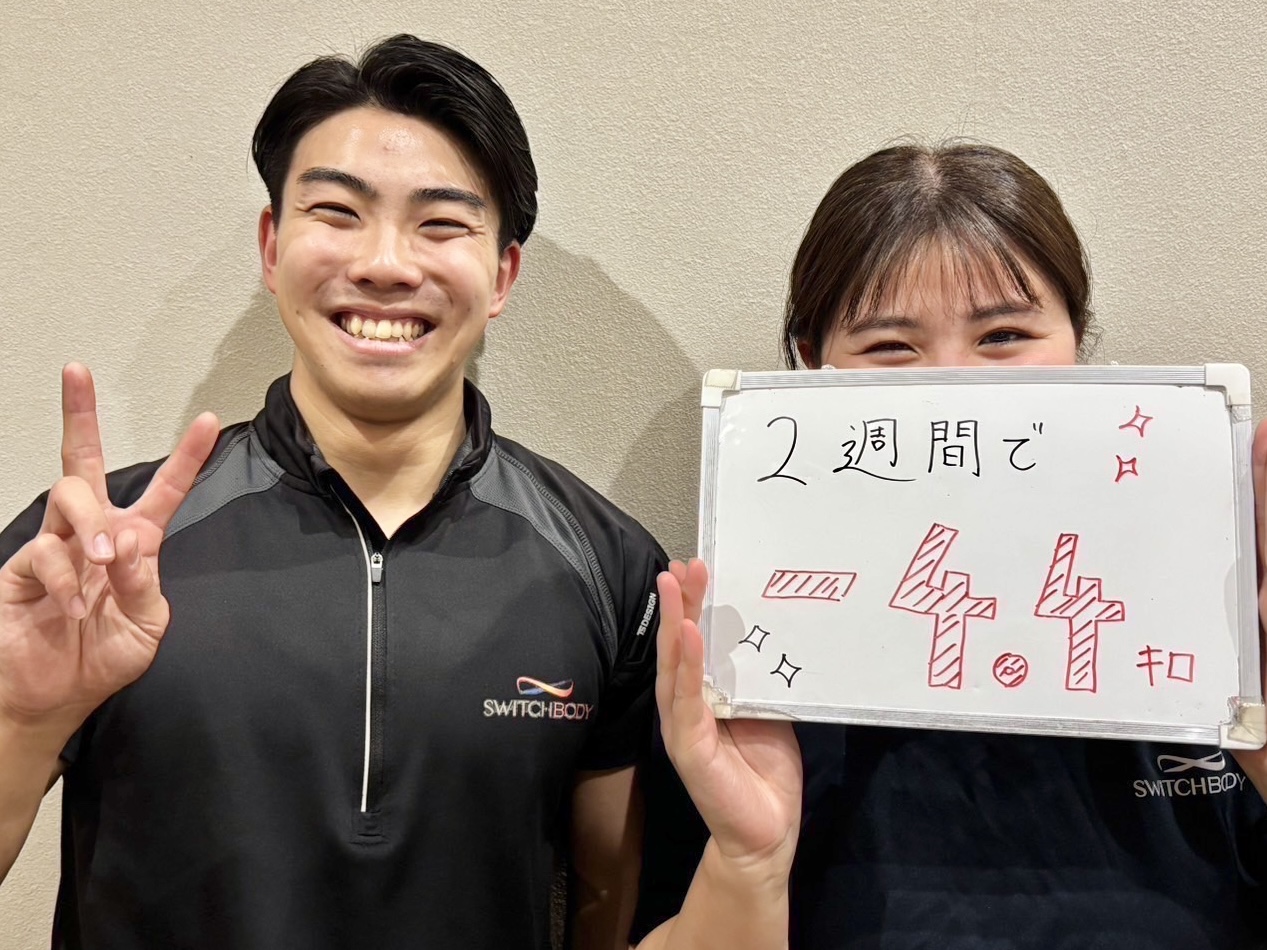 2週間で
-4.4キロ
7SDESIGN
SWITCHBODY
SWITCHBODY